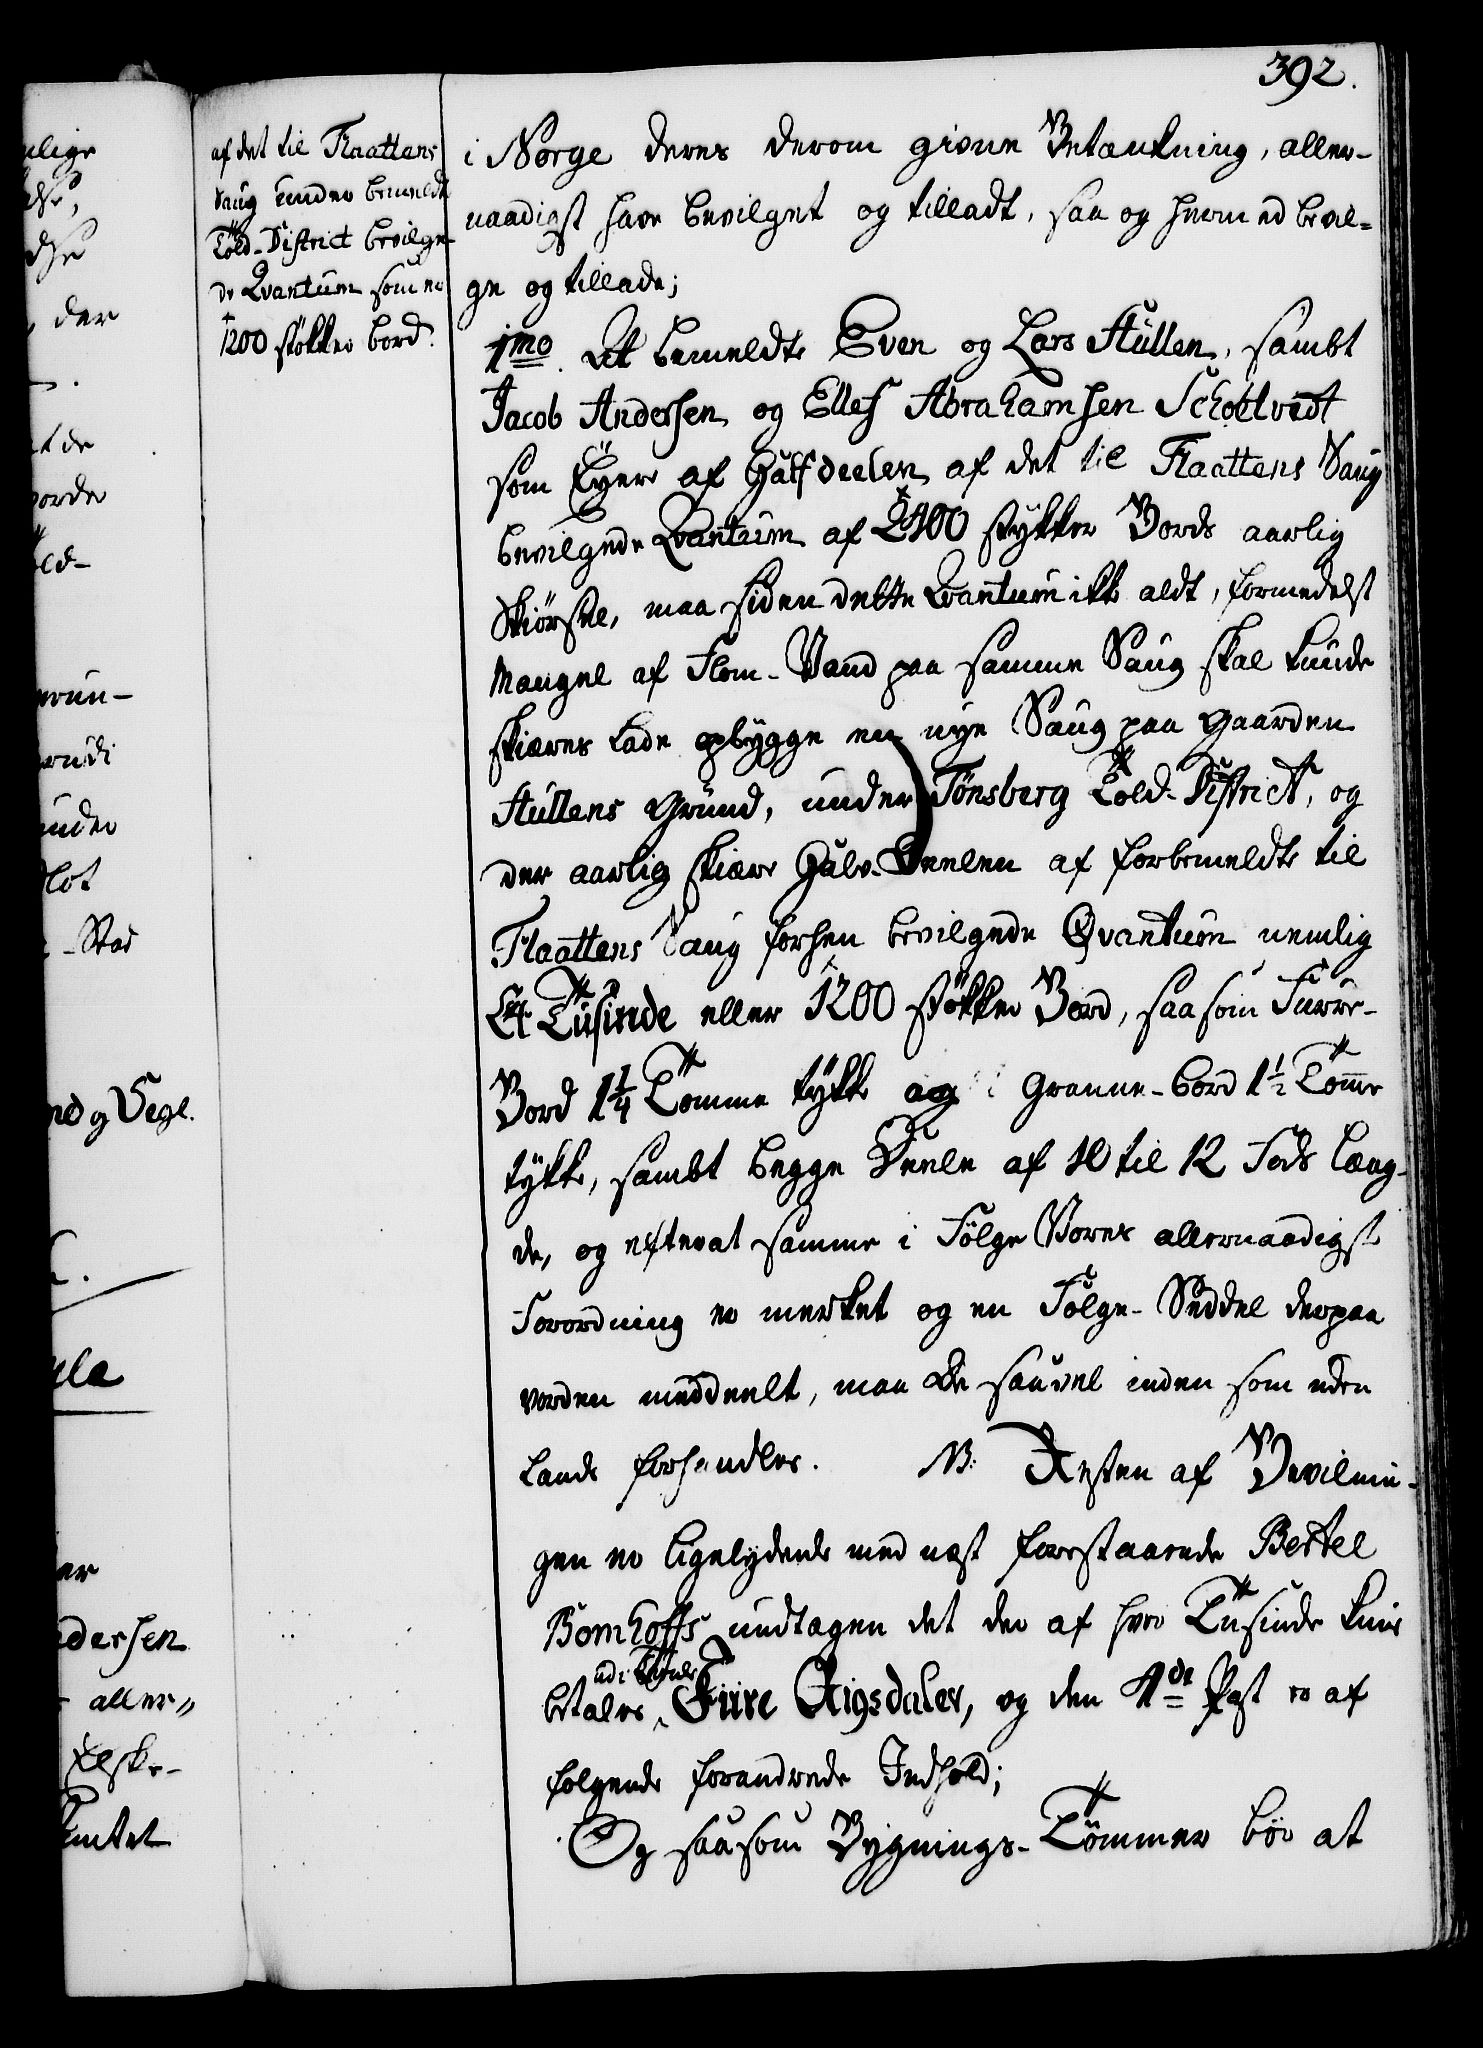 392.
af det til Flaattens
Saug under bemeldte
Told-District bevilge-
de Qvantum som er
1200 støkker bord.
i Norge deres derom givne Betænkning, aller-
naadigst have bevilget og tilladt, saa og hermed bevil-
ge og tillade;
1mo. At bemeldte Even og Lars Hüllen, sambt
Jacob Andersen og Ellef Abrahamsen Scholtvedt
som Eyere af Halfdeelen af det til Flaattens Saug
bevilgede Qvantum af 2400 stykker Bords aarlig
Skiørsel, maa siden dette Qvantum ikke aldt, formedelst
Mangel af Flom-Vand paa samme Saug skal kunde
skiæres lade opbygge en nye Saug paa Gaarden
Hullens Grund, under Tønsberg Told-District, og
der aarlig skiære Halv-Deelen af forbemeldte til
Flaattens Saug forhen bevilgede Qvantum nemlig
Et Tusinde eller 1200 støkker Bord, saasom Furre-
Bord 1 1/4 Tomme tykke og Granne-bord 1 1/2 Tomme
tykke, sambt begge Deele af 10 til 12 Fods Læng-
de, og efterat samme i Følge Vores allernaadigst
Forordning er merket og en Følge-Seddel derpaa
vorden meddeelt, maa de saavel inden som uden
Lands forhandles. NB: Resten af Bevilnin-
gen er ligelydende med næst forestaaende Bertel
Bomhoffs undtagen det der af hver Tusinde kuns
betales Fiire Rigsdaler, og den 4de Post er af
følgende forandrede Indhold;
Og saasom Bygnings-Tømmer bør at
nlige
der
nd og Segl.
dersen
aller„